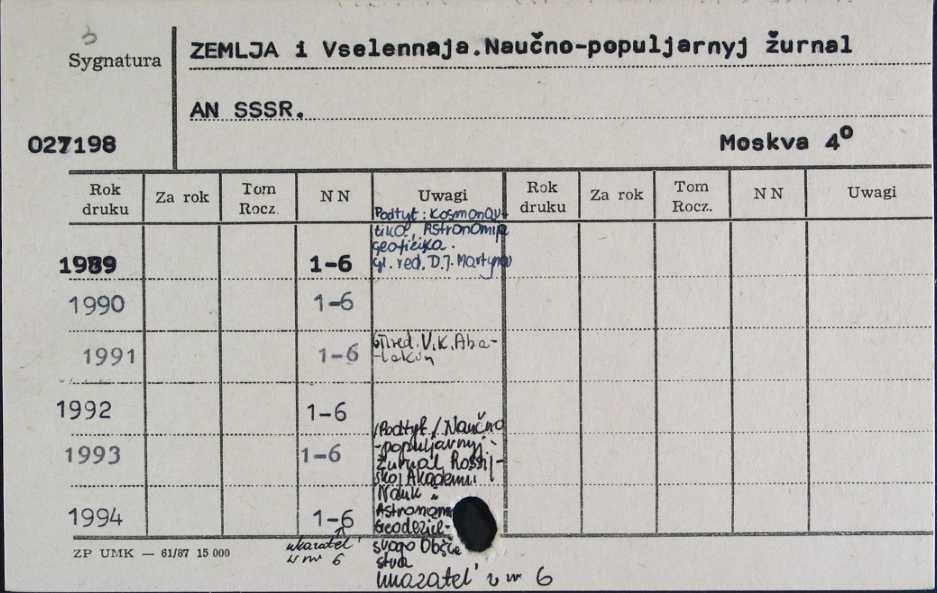 3
Sygnatura
ZEMLJA i Vselennaja.Naučno-populjarnyj žurnal
AN SSSR.
027198
Moskva 4º
Rok druku Za rok Tom Rocz. N N Uwagi Rok druku Za rok Tom Rocz. N N Uwagi
Podtyt: Kosmonau-
tika, Astronomija
geofizika.
1989 1-6 gł. red. D.J. Martynov
1990 1-6
1991 1-6 red. V.K. Aba-
-lakin
1992 1-6
/Podtyt/ Naučno
-populjarnyj
1993 1-6
žurnal Rossij-
skoj Akademii
Nauk
Astronomo
1994 1-6
Geodezič-
skogo Obšče
stva
ukazatel'
v nr 6
ukazatel' v nr 6
ZP UMK — 61/87 15 000